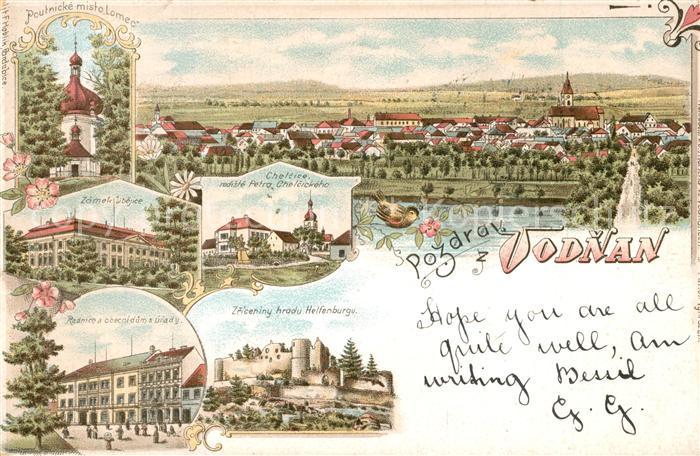 Poutnické místo Lomec
Chelčice,
rodiště Petra Chelčického
Zámek Libějice
Pozdrav
z VODŇAN
Radnice a obecní dům s úřady.
Zříceniny hradu Helfenburgu.
Hope you are all
quite well, am
writing Bessil
G. G.